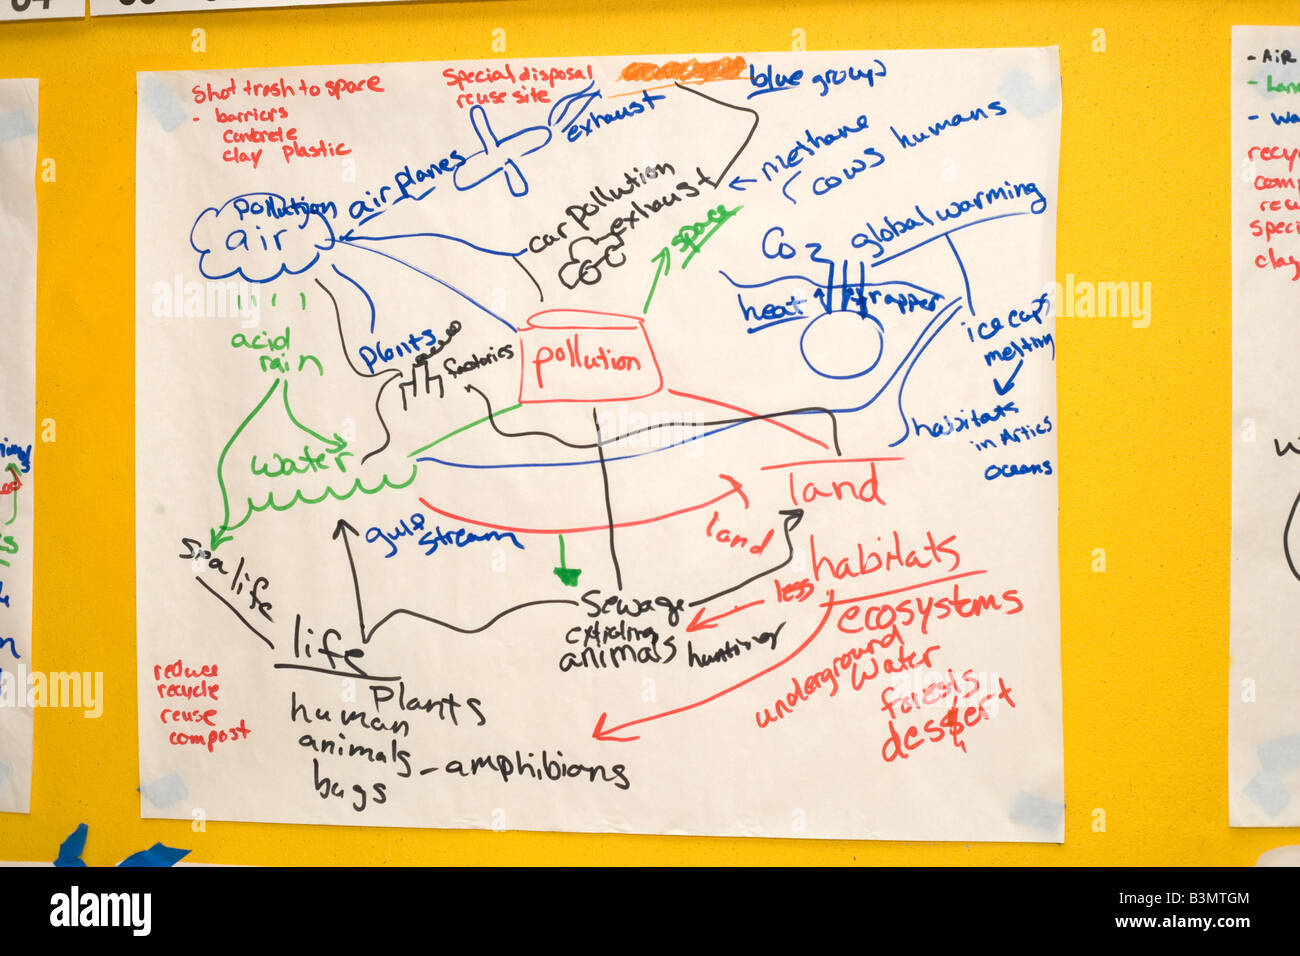 Shot trash to space
- barriers
concrete
clay plastic
Special disposal
reuse site
blue group
exhaust
air planes
pollution
air
car pollution
exhaust
methane
cows humans
space
global warming
CO2
heat trapper
ice caps
melting
habitats
in Artics
oceans
acid
rain
plants
factories
pollution
water
land
gulf
stream
land
sea life
life
Plants
human
animals - amphibians
bugs
Sewage
animals
hunting
less
habitats
ecosystems
underground
water
forests
dessert
reduce
recycle
reuse
compost
- AiR
alamy
Image ID: B3MTGM
www.alamy.com